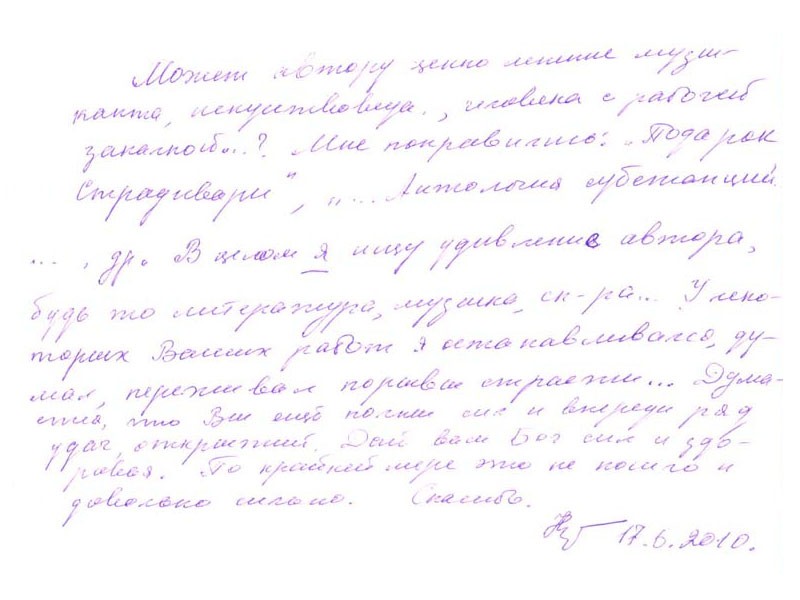 Может автору ценно мнение музы-
канта, искуствоведа., человека с рабочей
закалкой...? Мне понравились: „Подарок
Страдивари", „... Антология субстанций
..., др. В целом я ищу удивление автора,
будь то литература, музыка, ск-ра... У неко-
торых Ваших работ я останавливался, ду-
мал, переживал порывы страсти... Дума-
ется, что Вы ещё полны сил и впереди ряд
удач, открытий. Дай вам Бог сил и здо-
ровья. По крайней мере это не пошло и
довольно смело. Спасибо.
17.6.2010.